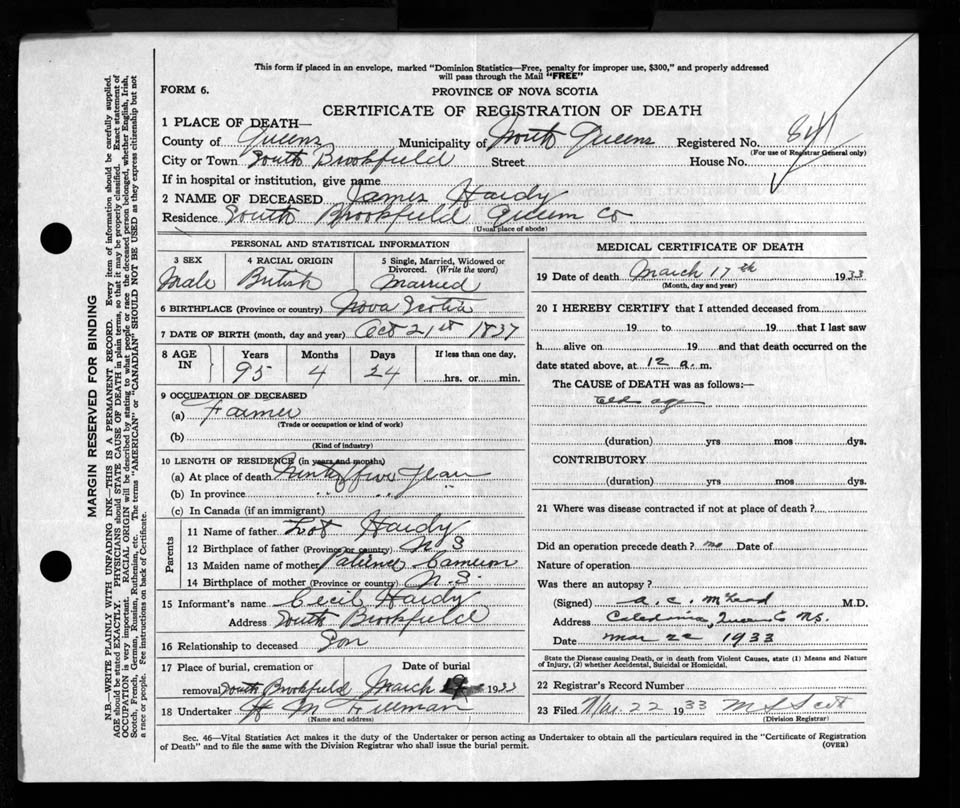 This form if placed in an envelope, marked "Dominion Statistics—Free, penalty for improper use, $300," and properly addressed
will pass through the Mail "FREE"
FORM 6.
PROVINCE OF NOVA SCOTIA
CERTIFICATE OF REGISTRATION OF DEATH
1 PLACE OF DEATH—
County of Queens Municipality of North Queens Registered No. 841
(For use of Registrar General only)
City or Town South Brookfield Street House No.
If in hospital or institution, give name
2 NAME OF DECEASED James Hardy
Residence South Brookfield Queens Co
(Usual place of abode)
MARGIN RESERVED FOR BINDING
N.B.—WRITE PLAINLY WITH UNFADING INK—THIS IS A PERMANENT RECORD. Every item of information should be carefully supplied.
AGE should be stated EXACTLY. PHYSICIANS should STATE CAUSE OF DEATH in plain terms, so that it may be properly classified. Exact statement of
OCCUPATION is very important. RACIAL ORIGIN will be described by stating to what people or race the deceased person belonged, whether English, Irish,
Scotch, French, German, Russian, Ruthenian, etc. The terms "AMERICAN" or "CANADIAN" SHOULD NOT BE USED as they express citizenship but not
a race or people. See instructions on back of Certificate.
PERSONAL AND STATISTICAL INFORMATION
3 SEX
Male
4 RACIAL ORIGIN
British
5 Single, Married, Widowed or
Divorced. (Write the word)
Married
6 BIRTHPLACE (Province or country) Nova Scotia
7 DATE OF BIRTH (month, day and year) Oct 21st 1837
8 AGE
IN
Years
95
Months
4
Days
24
If less than one day,
hrs. or min.
9 OCCUPATION OF DECEASED
(a) Farmer
(Trade or occupation or kind of work)
(b)
(Kind of industry)
10 LENGTH OF RESIDENCE (in years and months)
(a) At place of death Ninty five Years
(b) In province " " "
(c) In Canada (if an immigrant)
Parents
11 Name of father Lot Hardy
12 Birthplace of father (Province or country) N S
13 Maiden name of mother Patience Cameron
14 Birthplace of mother (Province or country) N.S.
15 Informant's name Cecil Hardy
Address South Brookfield
16 Relationship to deceased Son
17 Place of burial, cremation or Date of burial
removal South Brookfield March 19 1933
18 Undertaker H M Freeman
(Name and address)
MEDICAL CERTIFICATE OF DEATH
19 Date of death March 17th 1933
(Month, day and year)
20 I HEREBY CERTIFY that I attended deceased from
19 to 19 that I last saw
h alive on 19 and that death occurred on the
date stated above, at 12 a. m.
The CAUSE OF DEATH was as follows:—
old age
(duration) yrs mos dys.
CONTRIBUTORY
(duration) yrs mos dys.
21 Where was disease contracted if not at place of death?
Did an operation precede death? no Date of
Nature of operation
Was there an autopsy?
(Signed) A. C. McLeod M.D.
Address Caledonia, Queens Co NS.
Date Mar 22 1933
State the Disease causing Death, or in death from Violent Causes, state (1) Means and Nature
of Injury, (2) whether Accidental, Suicidal or Homicidal.
22 Registrar's Record Number
23 Filed Mar. 22 1933 M S Scott
(Division Registrar)
Sec. 46—Vital Statistics Act makes it the duty of the Undertaker or person acting as Undertaker to obtain all the particulars required in the "Certificate of Registration
of Death" and to file the same with the Division Registrar who shall issue the burial permit.
(OVER)